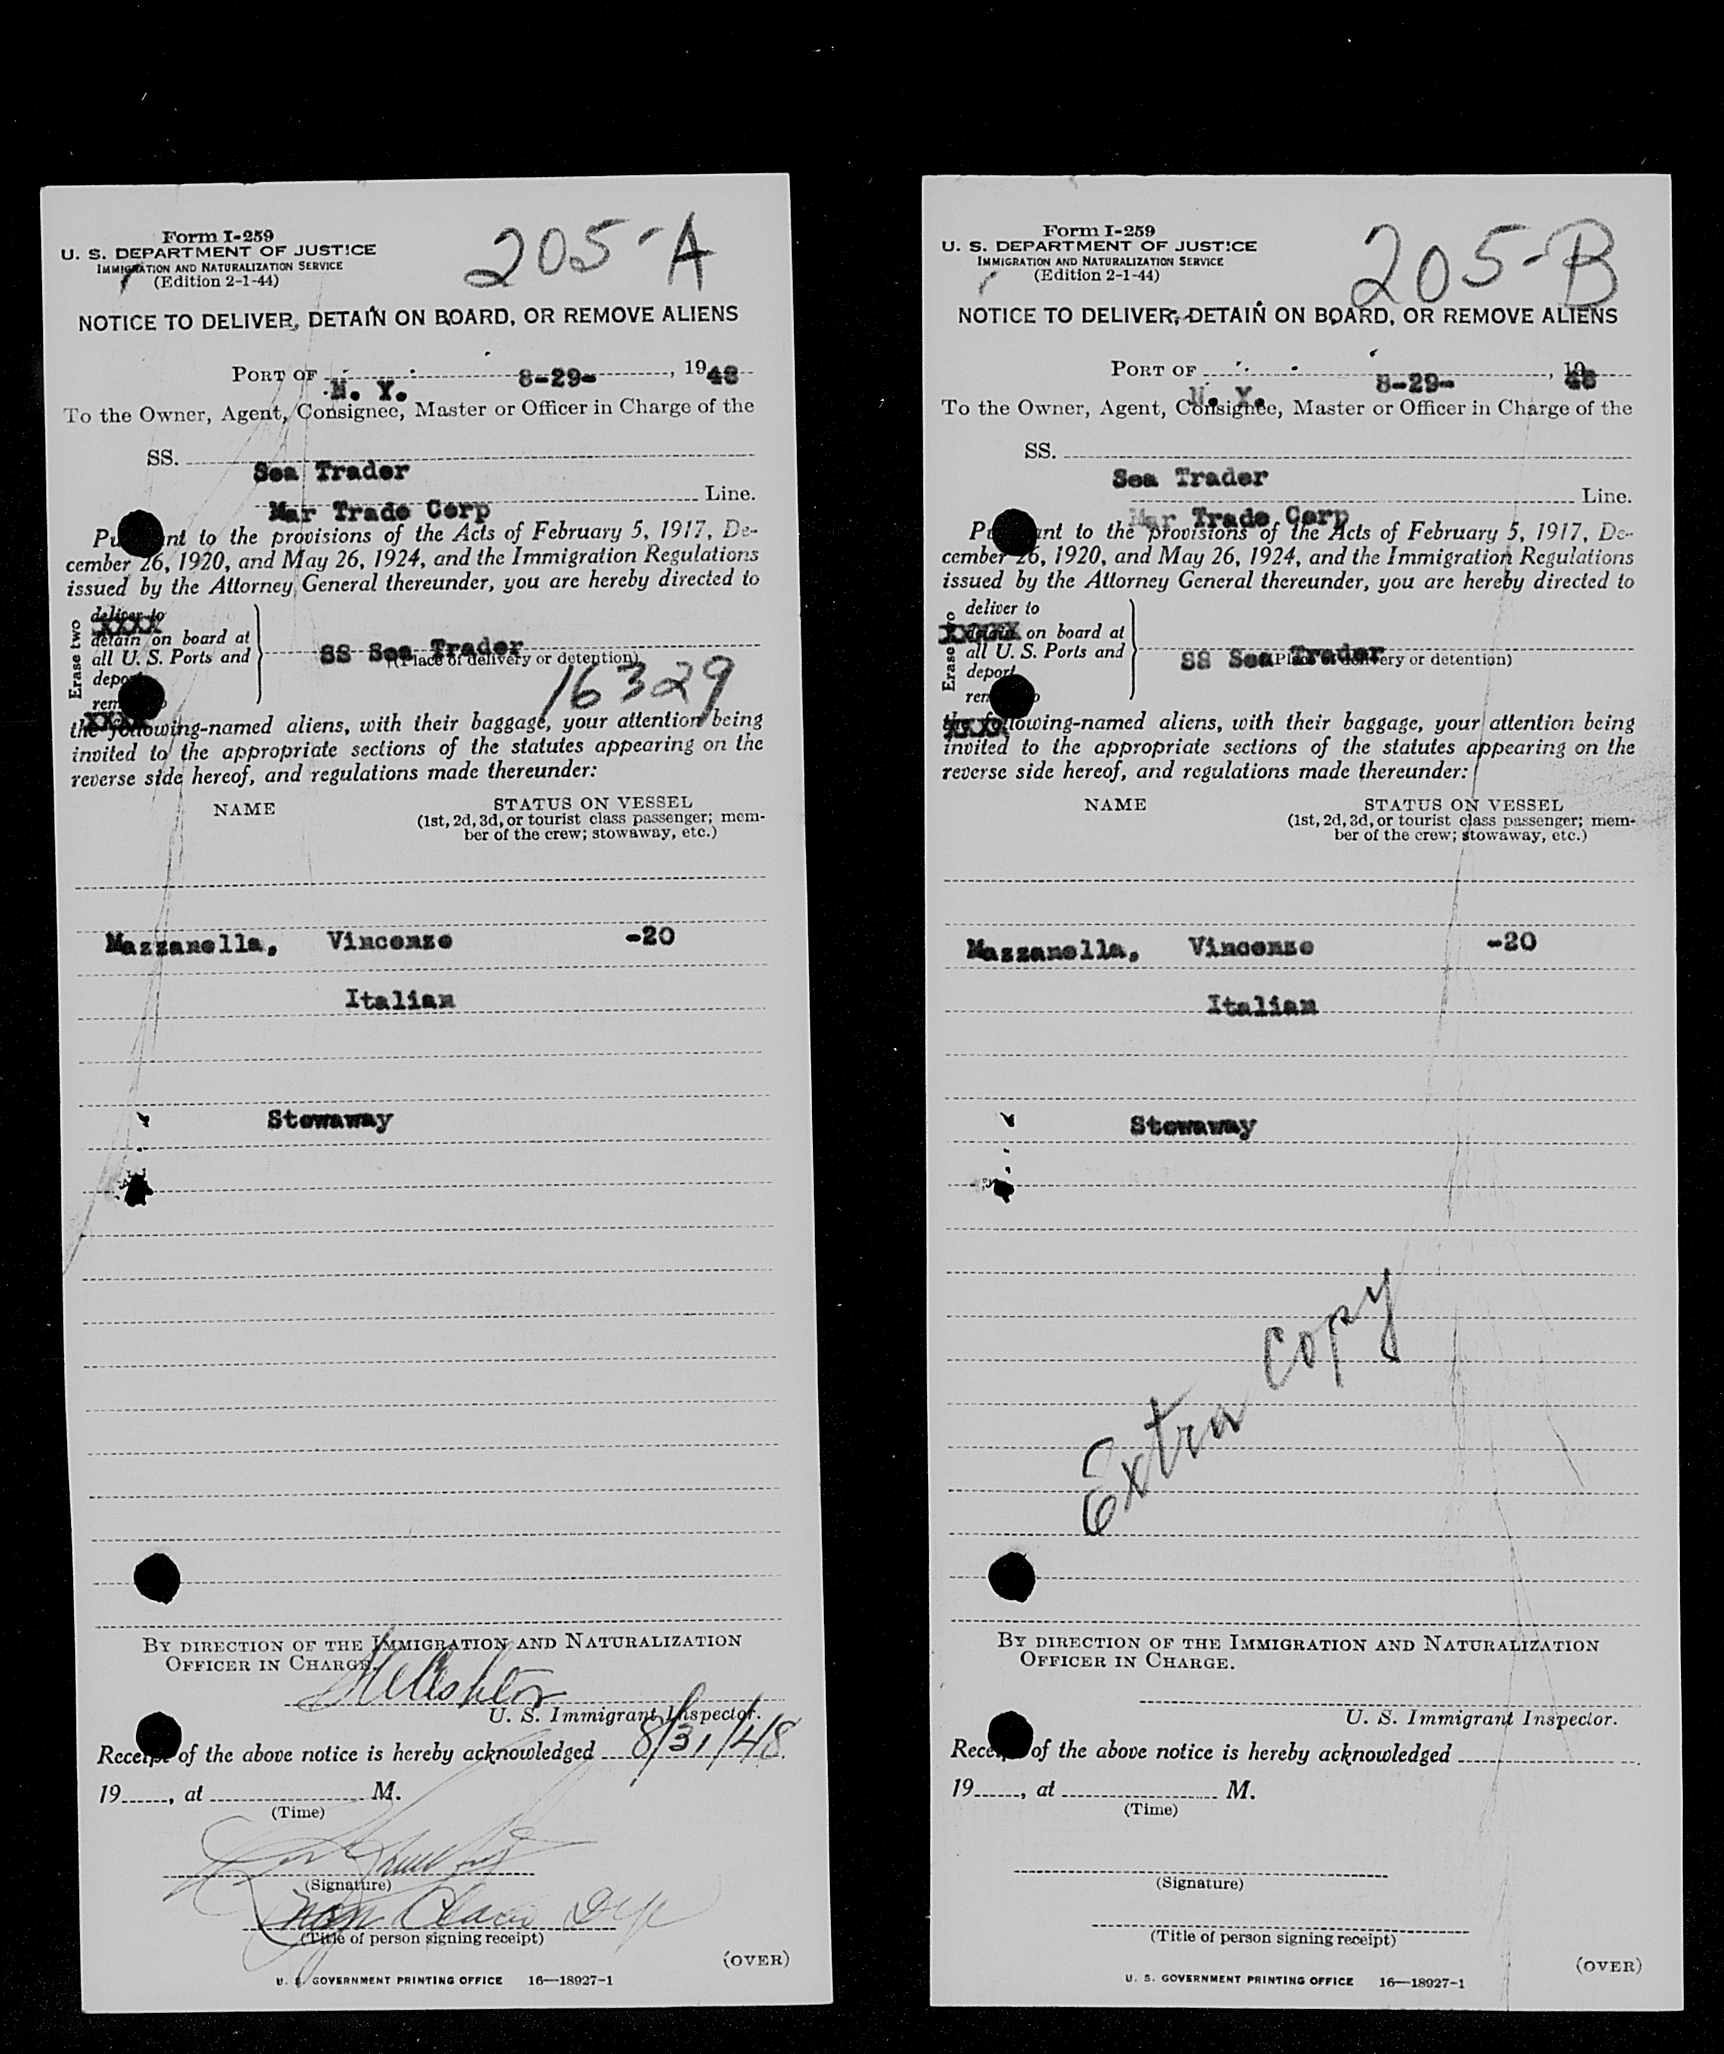 Form I-259
U. S. DEPARTMENT OF JUSTICE
IMMIGRATION AND NATURALIZATION SERVICE
(Edition 2-1-44)
205-A
NOTICE TO DELIVER, DETAIN ON BOARD, OR REMOVE ALIENS
PORT OF N. Y. 8-29- , 1948
To the Owner, Agent, Consignee, Master or Officer in Charge of the
SS. Sea Trader
Mar Trade Corp Line.
Pursuant to the provisions of the Acts of February 5, 1917, De-
cember 26, 1920, and May 26, 1924, and the Immigration Regulations
issued by the Attorney General thereunder, you are hereby directed to
Erase two
deliver to
xxxx
detain on board at
all U. S. Ports and
deport
remove to
xxxx
SS Sea Trader
(Place of delivery or detention)
16329
the following-named aliens, with their baggage, your attention being
invited to the appropriate sections of the statutes appearing on the
reverse side hereof, and regulations made thereunder:
NAME STATUS ON VESSEL
(1st, 2d, 3d, or tourist class passenger; mem-
ber of the crew; stowaway, etc.)
Mazzanella, Vincenzo -20
Italian
Stowaway
BY DIRECTION OF THE IMMIGRATION AND NATURALIZATION
OFFICER IN CHARGE.
U. S. Immigrant Inspector.
Receipt of the above notice is hereby acknowledged 8/31/48
19 , at M.
(Time)
(Signature)
(Title of person signing receipt)
(OVER)
U. S. GOVERNMENT PRINTING OFFICE 16—18927-1
Form I-259
U. S. DEPARTMENT OF JUSTICE
IMMIGRATION AND NATURALIZATION SERVICE
(Edition 2-1-44)
205-B
NOTICE TO DELIVER, DETAIN ON BOARD, OR REMOVE ALIENS
PORT OF N. Y. 8-29- , 1948
To the Owner, Agent, Consignee, Master or Officer in Charge of the
SS. Sea Trader
Mar Trade Corp Line.
Pursuant to the provisions of the Acts of February 5, 1917, De-
cember 26, 1920, and May 26, 1924, and the Immigration Regulations
issued by the Attorney General thereunder, you are hereby directed to
Erase two
deliver to
xxxxx
detain on board at
all U. S. Ports and
deport
remove to
xxxx
SS Sea Trader
(Place of delivery or detention)
the following-named aliens, with their baggage, your attention being
invited to the appropriate sections of the statutes appearing on the
reverse side hereof, and regulations made thereunder:
NAME STATUS ON VESSEL
(1st, 2d, 3d, or tourist class passenger; mem-
ber of the crew; stowaway, etc.)
Mazzanella, Vincenzo -20
Italian
Stowaway
Extra copy
BY DIRECTION OF THE IMMIGRATION AND NATURALIZATION
OFFICER IN CHARGE.
U. S. Immigrant Inspector.
Receipt of the above notice is hereby acknowledged
19 , at M.
(Time)
(Signature)
(Title of person signing receipt)
(OVER)
U. S. GOVERNMENT PRINTING OFFICE 16—18927-1